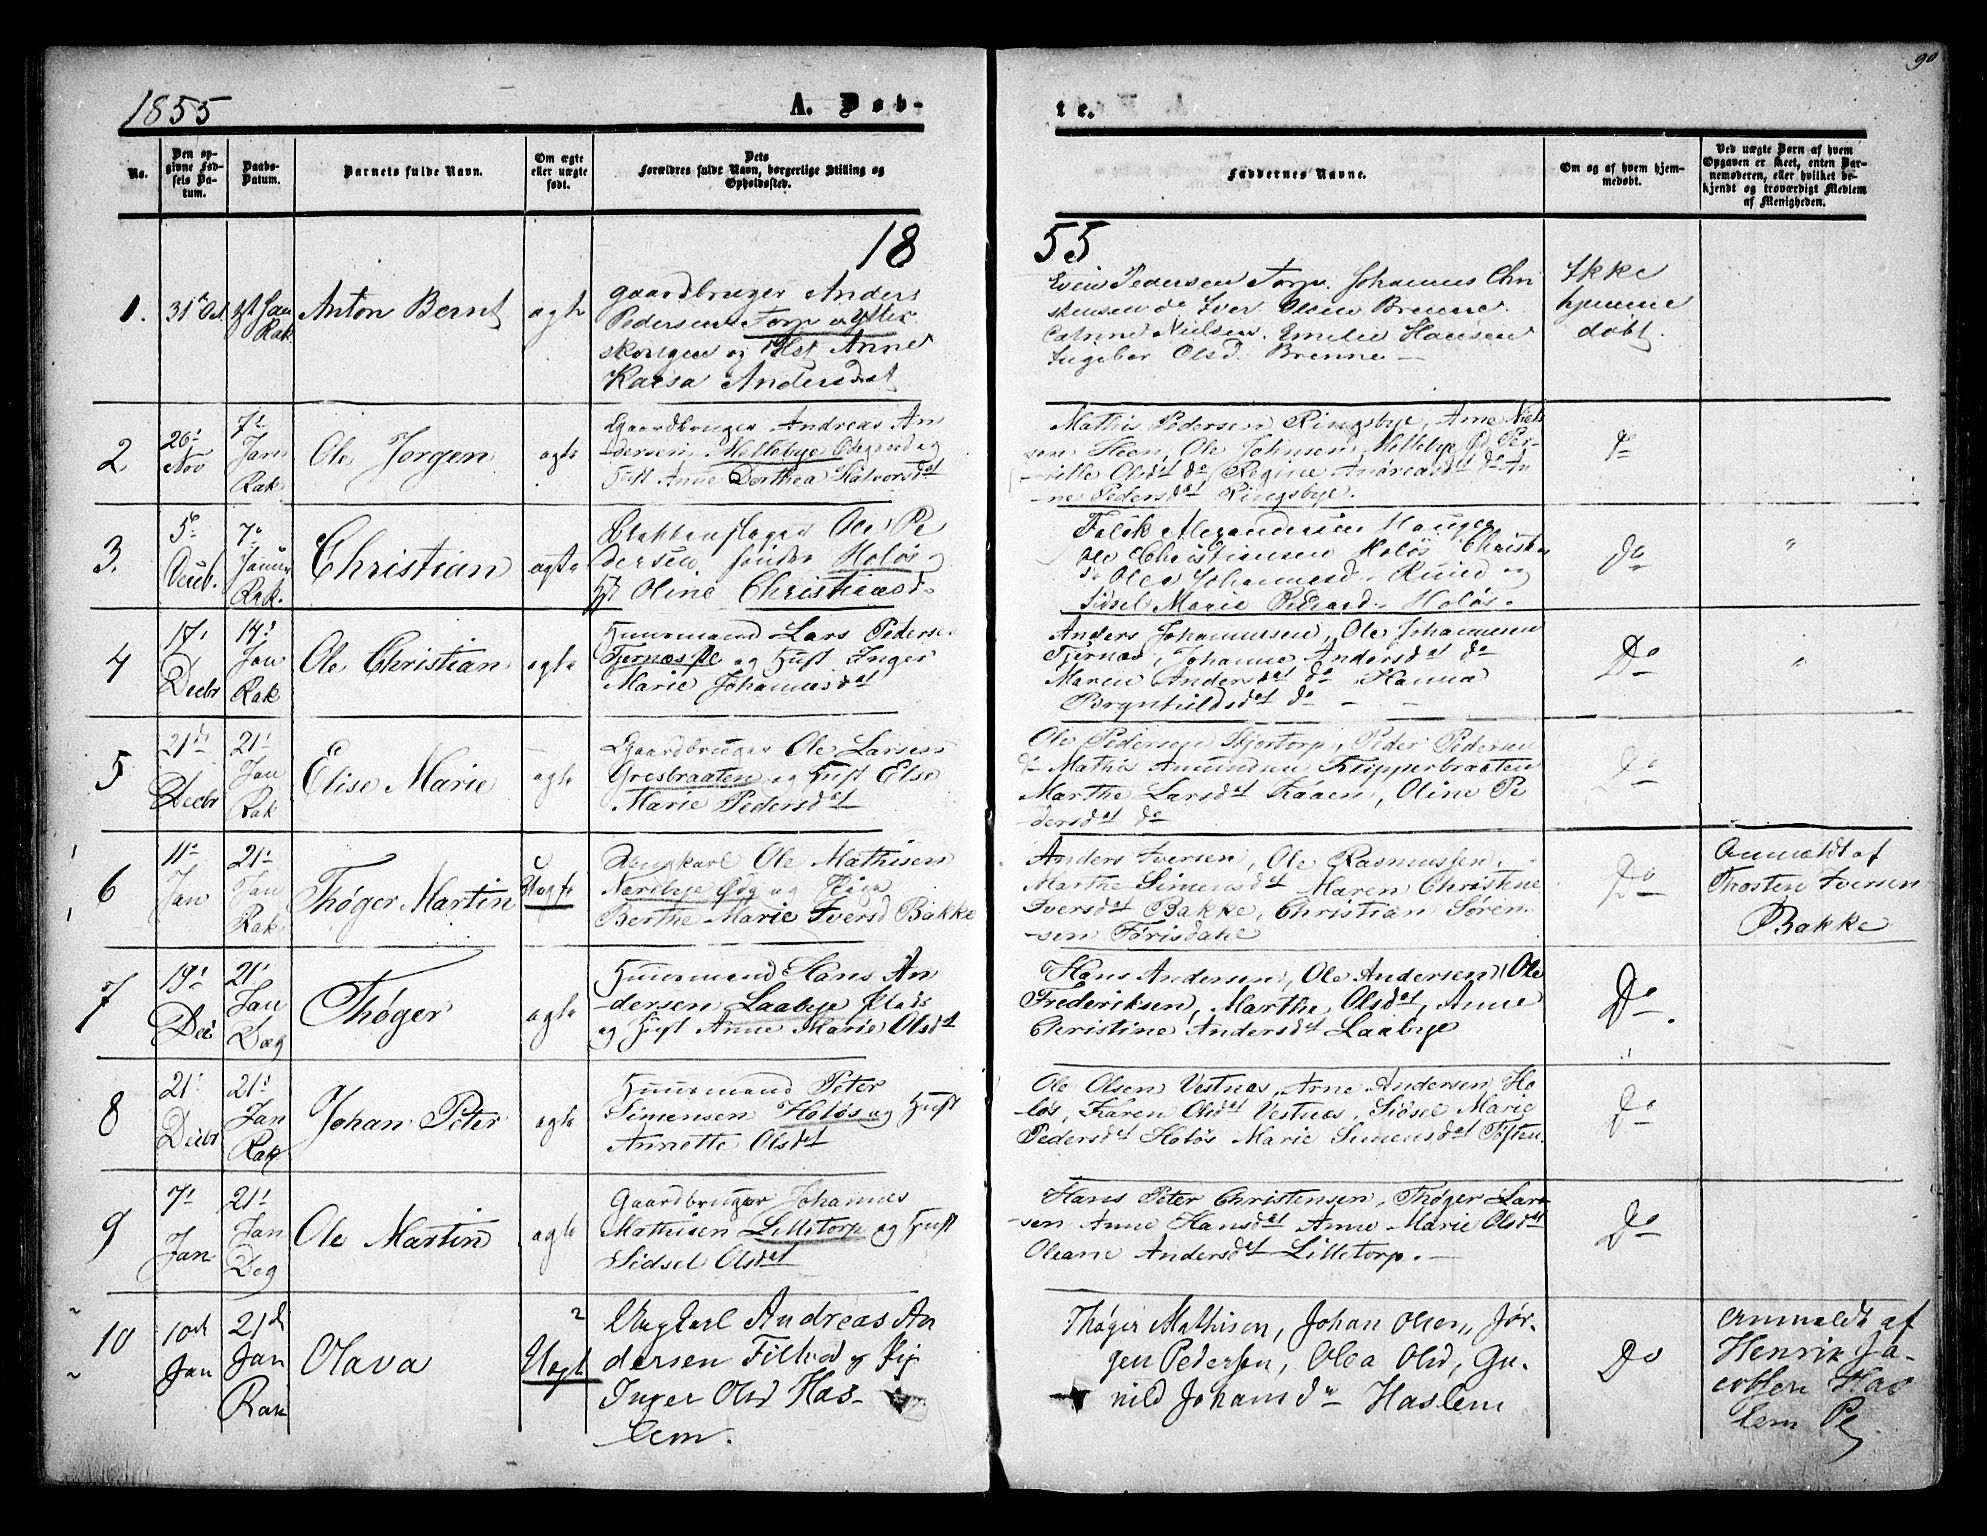 90
1855
A. Døb-
te.
No.
Den opgivne Fødsels Datum.
Daabs-Datum.
Barnets fulde Navn.
Om ægte eller uægte født.
Dets Forældres fulde Navn, borgerlige Stilling og Opholdssted.
Faddernes Navne.
Om og af hvem hjemmedøbt.
Ved uægte Børn af hvem Opgaven er skeet, enten Barnemoderen, eller hvilket bekjendt og troværdigt Medlem af Menigheden.
18
55
1. 31te Oct. Jan Rak Anton Bernt ægte
Gaardbruger Anders
Pedersen Torp
skougen og Hst Anne
Karsa Andersdat
Even Pedersen Torp. Johannes Chri
stensen do Iver Olsen Brenne
Catrine Nielsen. Emelie Hansen
Ingebor Olsd. Brenne —
Ikke
hjemme
døbt.
2 26' Nov 7' Jan Rak. Ole Jørgen ægte
Gaardbruger Andreas An
dersen, Mellebye Ødegaard og
Hust Anne Dorthea Halvorsdat
Mathis Pedersen Ringsbye, Arne Niel
sen Heen, Ole Johnsen Mellebye Per-
nille Olsdat do Regine Andreasdat do An
-ne Pedersdat Ringsbye.
do
3. 5te Decb. 7de Januar Rak. Christian ægte
Klokkenslager Ole Pe
dersen søndre Holøs og
Hst Oline Christiansd.
Falck Alexandersen Hauger
Ole Christiansen Holøs Christia
do Olea Johannesd. Ruud og
Sidsel Marie Pedersd. Holøs.
Do
"
4 17' Decbr 14' Jan Rak Ole Christian ægte
Huusmand Lars Pedersen
Tjernæs pl og Hust Inger
Marie Johannesdat
Anders Johannesen, Ole Johannesen
Tjernæs, Johanne Andersdat do
Maren Andersdat do Hanna
Brynhildsdat do - -
Do
"
5 21de Decbr 21' Jan Rak Elise Marie ægte
Gaardbruger Ole Larsen
Gresbraaten og Hust Elise
Marie Pedersdat
Ole Pedersen Skjortorp, Peder Pedersen
do Mathis Amundsen Kripperbraaten
Marthe Larsdat Kaaen, Oline Pe
dersdat do
Do
6 11' Jan 21' Jan Rak Thøger Martin Uægte
Ungkarl Ole Mathisen
Narebye Ødg og Pige
Berthe Marie Iversd Bakke
Anders Iversen, Ole Rasmussen,
Marthe Simensdat Maren Christine
Iversdat Bakke, Christian Søren-
-sen Tørisdahl
Do
Anmældt af
Thosten Iversen
Bakke
7 19' Dec 21' Jan Dæg Thøger ægte
Huusmand Hans An
-dersen Laabye plads
og Hust Anne Marie Olsdat
Hans Andersen, Ole Andersen, Ole
Frederiksen, Marthe Olsdat, Anne
Christine Andersdat Laabye
Do.
8 21' Decbr 21' Jan Rak Johan Peter ægte
Huusmand Peter
Simensen Holøs og Hust
Annette Olsdat
Ole Olsen Vestnæs, Arne Andersen Ho
løs, Karen Olsdat Vestnæs, Sidsel Marie
Pedersdat Holøs Marie Simensdat Toften.
Do
9 7' Jan 21' Jan Deg Ole Martin ægte
Gaardbruger Johannes
Mathisen Lilletorp og Hust
Sidsel Olsdat
Hans Peter Christensen, Thøger Lar
-sen Anne Hansdat Anne Marie Olsdat
Oleane Andersdat Lilletorp. —
Do
10 10de Jan 21de Jan Rak Olava Uægt
Ungkarl Andreas An
dersen og Pig
Inger Olsd Has-
lem.
Thøger Mathisen, Johan Olsen, Jør-
gen Pedersen, Olea Olsd, Gu-
nild Johansd Haslem
Do
Anmeldt af
Henrik Ja-
cobsen Has
lem